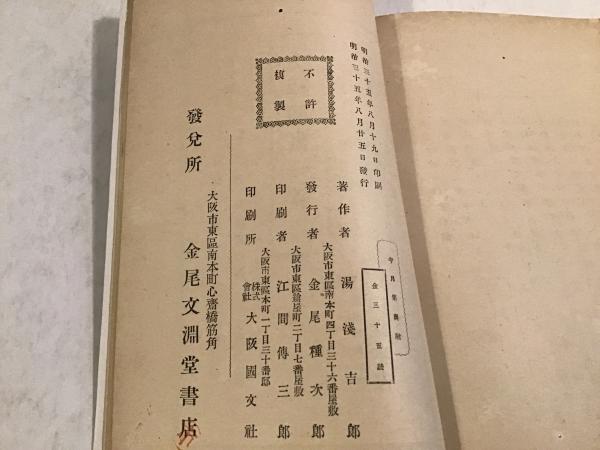 明治三十五年八月十九日印刷
明治三十五年八月廿五日發行
不許
複製
金三十五錢
著作者 湯淺吉郎
大阪市東區南本町四丁目三十六番屋敷
發行者 金尾種次郎
大阪市東區鎗屋町二丁目七番屋敷
印刷者 江間傳三郎
大阪市東區本町一丁目三十番邸
印刷所 株式會社 大阪國文社
大阪市東區南本町心齋橋筋角
發兌所 金尾文淵堂書店